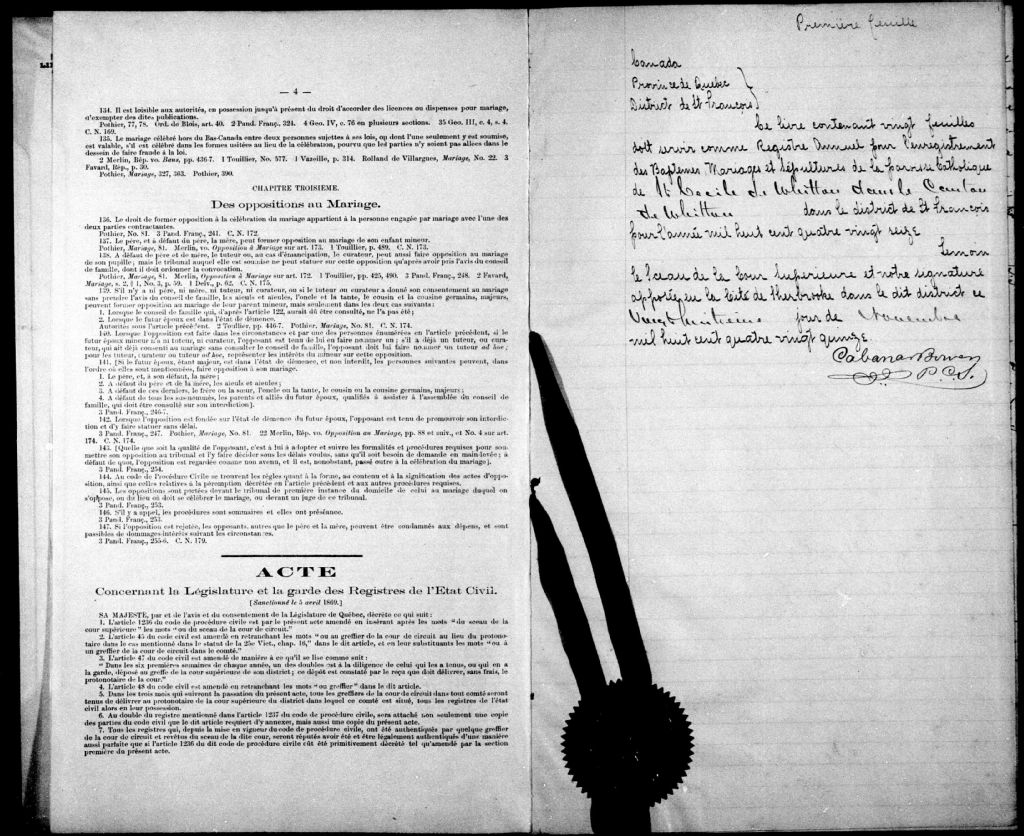 — 4 —
134. Il est loisible aux autorités, en possession jusqu'à présent du droit d'accorder des licences ou dispenses pour mariage,
d'exempter des dites publications.
Pothier, 77, 78. Ord. de Blois, art. 40. 2 Pand. Franç., 324. 4 Geo. IV, c. 76 en plusieurs sections. 35 Geo. III, c. 4, s. 4.
C. N. 169.
135. Le mariage célébré hors du Bas-Canada entre deux personnes sujettes à ses lois, ou dont l'une seulement y est soumise,
est valable, s'il est célébré dans les formes usitées au lieu de la célébration, pourvu que les parties n'y soient pas allées dans le
dessein de faire fraude à la loi.
2 Merlin, Rép. vo. Bans, pp. 436-7. 1 Touillier, No. 577. 1 Vazeille, p. 314. Rolland de Villargues, Mariage, No. 22. 3
Favard, Rép., p. 30.
Pothier, Mariage, 327, 363. Pothier, 390.
CHAPITRE TROISIEME.
Des oppositions au Mariage.
136. Le droit de former opposition à la célébration du mariage appartient à la personne engagée par mariage avec l'une des
deux parties contractantes.
Pothier, No. 81. 3 Pand. Franç., 241. C. N. 172.
137. Le père, et à défaut du père, la mère, peut former opposition au mariage de son enfant mineur.
Pothier, Mariage, 81. Merlin, vo. Opposition à Mariage sur art. 173. 1 Touillier, p. 489. C. N. 173.
138. A défaut de père et de mère, le tuteur ou, au cas d'émancipation, le curateur, peut aussi faire opposition au mariage
de son pupille; mais le tribunal auquel elle est soumise ne peut statuer sur cette opposition qu'après avoir pris l'avis du conseil
de famille, dont il doit ordonner la convocation.
Pothier, Mariage, 81. Merlin, Opposition à Mariage sur art. 172. 1 Touillier, pp. 425, 490. 3 Pand. Franç., 248. 2 Favard,
Mariage, s. 2, § 1, No. 3, p. 59. 1 Delv., p. 62. C. N. 175.
139. S'il n'y a ni père, ni mère, ni tuteur, ni curateur, ou si le tuteur ou curateur a donné son consentement au mariage
sans prendre l'avis du conseil de famille, les aieuls et aieules, l'oncle et la tante, le cousin et la cousine germains, majeurs,
peuvent former opposition au mariage de leur parent mineur, mais seulement dans les deux cas suivants:
1. Lorsque le conseil de famille qui, d'après l'article 122, aurait dû être consulté, ne l'a pas été;
2. Lorsque le futur époux est dans l'état de démence.
Autorités sous l'article précédent. 2 Toullier, pp. 446-7. Pothier, Mariage, No. 81. C. N. 174.
140. Lorsque l'opposition est faite dans les circonstances et par une des personnes énumérées en l'article précédent, si le
futur époux mineur n'a ni tuteur, ni curateur, l'opposant est tenu de lui en faire nommer un; s'il a déjà un tuteur, ou cura-
teur, qui ait déjà consenti au mariage sans consulter le conseil de famille, l'opposant doit lui faire nommer un tuteur ad hoc;
pour les tuteur, curateur ou tuteur ad hoc, représenter les intérêts du mineur sur cette opposition.
141. [Si le futur époux, étant majeur, est dans l'état de démence, et non interdit, les personnes suivantes peuvent, dans
l'ordre où elles sont mentionnées, faire opposition à son mariage.
1. Le père, et, à son défaut, la mère;
2. A défaut du père et de la mère, les aieuls et aieules;
3. A défaut de ces derniers, le frère ou la sœur, l'oncle ou la tante, le cousin ou la cousine germains, majeurs;
4. A défaut de tous les susnommés, les parents et alliés du futur époux, qualifiés à assister à l'assemblée du conseil de
famille, qui doit être consulté sur son interdiction].
3 Pand. Franç., 246-7.
142. Lorsque l'opposition est fondée sur l'état de démence du futur époux, l'opposant est tenu de promouvoir son interdic-
tion et d'y faire statuer sans délai.
3 Pand. Franç., 247. Pothier, Mariage, No. 81. 22 Merlin, Rép. vo. Opposition au Mariage, pp. 88 et suiv., et No. 4 sur art.
174. C. N. 174.
143. [Quelle que soit la qualité de l'opposant, c'est à lui à adopter et suivre les formalités et procédures requises pour son
mettre son opposition au tribunal et l'y faire décider sous les délais voulus, sans qu'il soit besoin de demande en main-levée; à
défaut de quoi, l'opposition est regardée comme non avenu, et il est, nonobstant, passé outre à la célébration du mariage].
3 Pand. Franç., 254.
144. Au code de Procédure Civile se trouvent les règles quant à la forme, au contenu et à la signification des actes d'oppo-
sition, ainsi que celles relatives à la péremption décrétée en l'article précédent et aux autres procédures requises.
145. Les oppositions sont portées devant le tribunal de première instance du domicile de celui au mariage duquel on
s'oppose, ou du lieu où doit se célébrer le mariage, ou devant un juge de ce tribunal.
3 Pand. Franç., 253.
146. S'il y a appel, les procédures sont sommaires et elles ont préséance.
3 Pand. Franç., 253.
147. Si l'opposition est rejetée, les opposants, autres que le père et la mère, peuvent être condamnés aux dépens, et sont
passibles de dommages-intérêts suivant les circonstances.
3 Pand. Franç., 255-6. C. N. 179.
ACTE
Concernant la Législature et la garde des Registres de l'Etat Civil.
[Sanctionné le 5 avril 1869.]
SA MAJESTE, par et de l'avis et du consentement de la Législature de Québec, décrète ce qui suit:
1. L'article 1236 du code de procédure civile est par le présent acte amendé en insérant après les mots "du sceau de la
cour supérieure" les mots "ou du sceau de la cour de circuit."
2. L'article 45 du code civil est amendé en retranchant les mots "ou au greffier de la cour de circuit au lieu du protono-
taire dans le cas mentionné dans le statut de la 25e Vict., chap. 16," dans le dit article, et en leur substituants les mots "ou à
un greffier de la cour de circuit dans le comté."
3. L'article 47 du code civil est amendé de manière à ce qu'il se lise comme suit:
"Dans les six premières semaines de chaque année, un des doubles est à la diligence de celui qui les a tenus, ou qui en a
la garde, déposé au greffe de la cour supérieure de son district; ce dépôt est constaté par le reçu que doit délivrer, sans frais, le
protonotaire de la cour."
4. L'article 48 du code civil est amendé en retranchant les mots "ou greffier" dans le dit article.
5. Dans les trois mois qui suivront la passation du présent acte, tous les greffiers de la cour de circuit dans tout comté seront
tenus de délivrer au protonotaire de la cour supérieure du district dans lequel ce comté est situé, tous les registres de l'état
civil alors en leur possession.
6. Au double du registre mentionné dans l'article 1237 du code de procédure civile, sera attaché non seulement une copie
des parties du code civil que le dit article requiert d'y annexer, mais aussi une copie du présent acte.
7. Tous les registres qui, depuis la mise en vigueur du code de procédure civile, ont été authentiqués par quelque greffier
de la cour de circuit et revêtus du sceau de la dite cour, seront réputés avoir été et être légalement authentiqués d'une manière
aussi parfaite que si l'article 1236 du dit code de procédure civile eût été primitivement décrété tel qu'amendé par la section
première du présent acte.
Première feuille
Canada
Province de Quebec
District de St François
Ce livre contenant vingt feuilles
doit servir comme Registre Annuel pour l'enregistrement
des Baptemes Mariages et Sépultures de la paroisse Catholique
de St Cecile de Whitton dans le Canton
de Whitton dans le district de St François
pour l'année mil huit cent quatre vingt seize
Temoin
le Sceau de la Cour Superieure et notre signature
apposée en la Cité de Sherbrooke dans le dit district ce
Vingt huitième jour de Novembre
mil huit cent quatre vingt quinze
Cabana & Bowen
P. C. S.